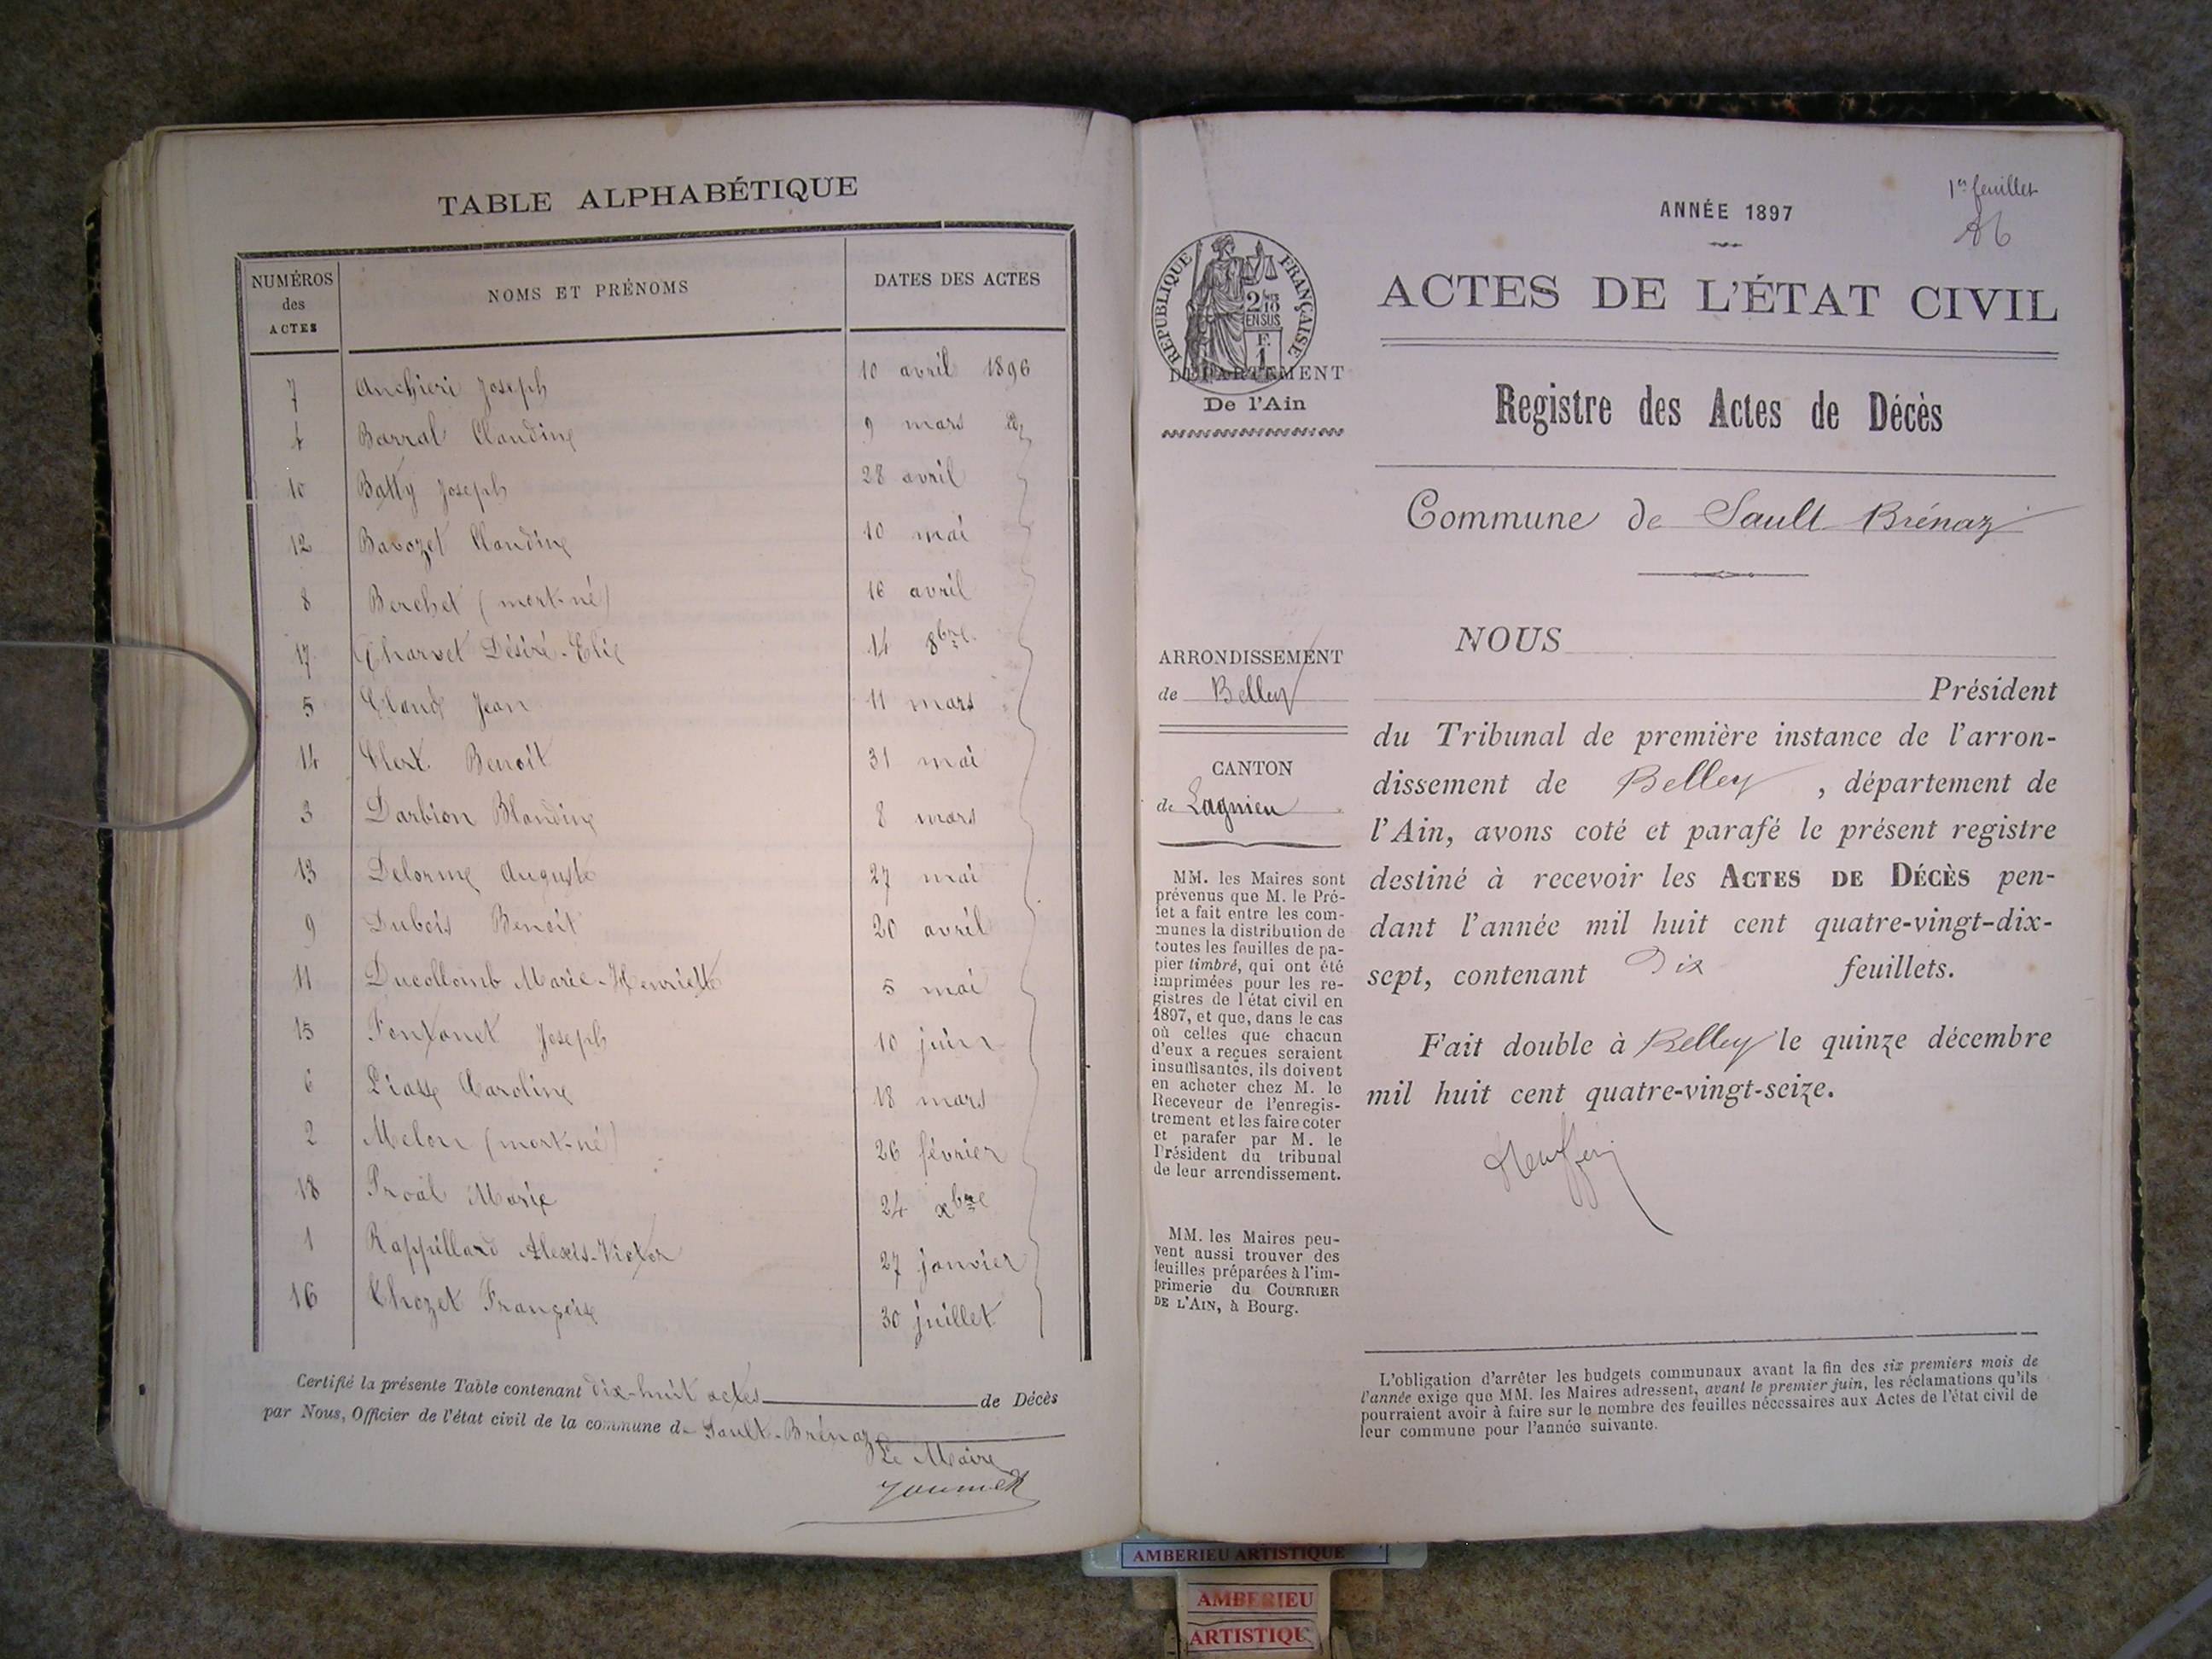 TABLE ALPHABÉTIQUE
NUMÉROS des ACTES | NOMS ET PRÉNOMS | DATES DES ACTES
7 Anchieri Joseph 10 avril 1896
4 Barral Claudine 9 mars
10 Batty Joseph 28 avril
12 Bavozet Claudine 10 mai
8 Berchet (mort-né) 16 avril
17 Charvet Désiré-Elie 14 8bre
5 Claude Jean 11 mars
14 Clert Benoit 31 mai
3 Darbion Blandine 8 mars
13 Delorme Auguste 27 mai
9 Dubois Benoit 20 avril
11 Ducollomb Marie-Henriette 5 mai
15 Fontanet Joseph 10 juin
6 Liasse Caroline 18 mars
2 Melon (mort-né) 26 février
18 Proal Marie 24 xbre
1 Rappillard Alexis-Victor 27 janvier
16 Chozet Françoise 30 juillet
Certifié la présente Table contenant dix-huit actes de Décès
par Nous, Officier de l'état civil de la commune de Sault-Brénaz
Le Maire
1er feuillet
ANNÉE 1897
ACTES DE L'ÉTAT CIVIL
RÉPUBLIQUE FRANÇAISE
2/10 EN SUS
F. 1
DÉPARTEMENT
De l'Ain
Registre des Actes de Décès
Commune de Sault Brénaz
ARRONDISSEMENT
de Belley
CANTON
de Lagnieu
MM. les Maires sont
prévenus que M. le Pré-
fet a fait entre les com-
munes la distribution de
toutes les feuilles de pa-
pier timbré, qui ont été
imprimées pour les re-
gistres de l'état civil en
1897, et que, dans le cas
où celles que chacun
d'eux a reçues seraient
insuffisantes, ils doivent
en acheter chez M. le
Receveur de l'enregis-
trement et les faire coter
et parafer par M. le
Président du tribunal
de leur arrondissement.
MM. les Maires peu-
vent aussi trouver des
feuilles préparées à l'im-
primerie du COURRIER
DE L'AIN, à Bourg.
NOUS
Président
du Tribunal de première instance de l'arron-
dissement de Belley, département de
l'Ain, avons coté et parafé le présent registre
destiné à recevoir les ACTES DE DÉCÈS pen-
dant l'année mil huit cent quatre-vingt-dix-
sept, contenant Dix feuillets.
Fait double à Belley le quinze décembre
mil huit cent quatre-vingt-seize.
L'obligation d'arrêter les budgets communaux avant la fin des six premiers mois de
l'année exige que MM. les Maires adressent, avant le premier juin, les réclamations qu'ils
pourraient avoir à faire sur le nombre des feuilles nécessaires aux Actes de l'état civil de
leur commune pour l'année suivante.
AMBERIEU ARTISTIQUE
AMBERIEU
ARTISTIQUE